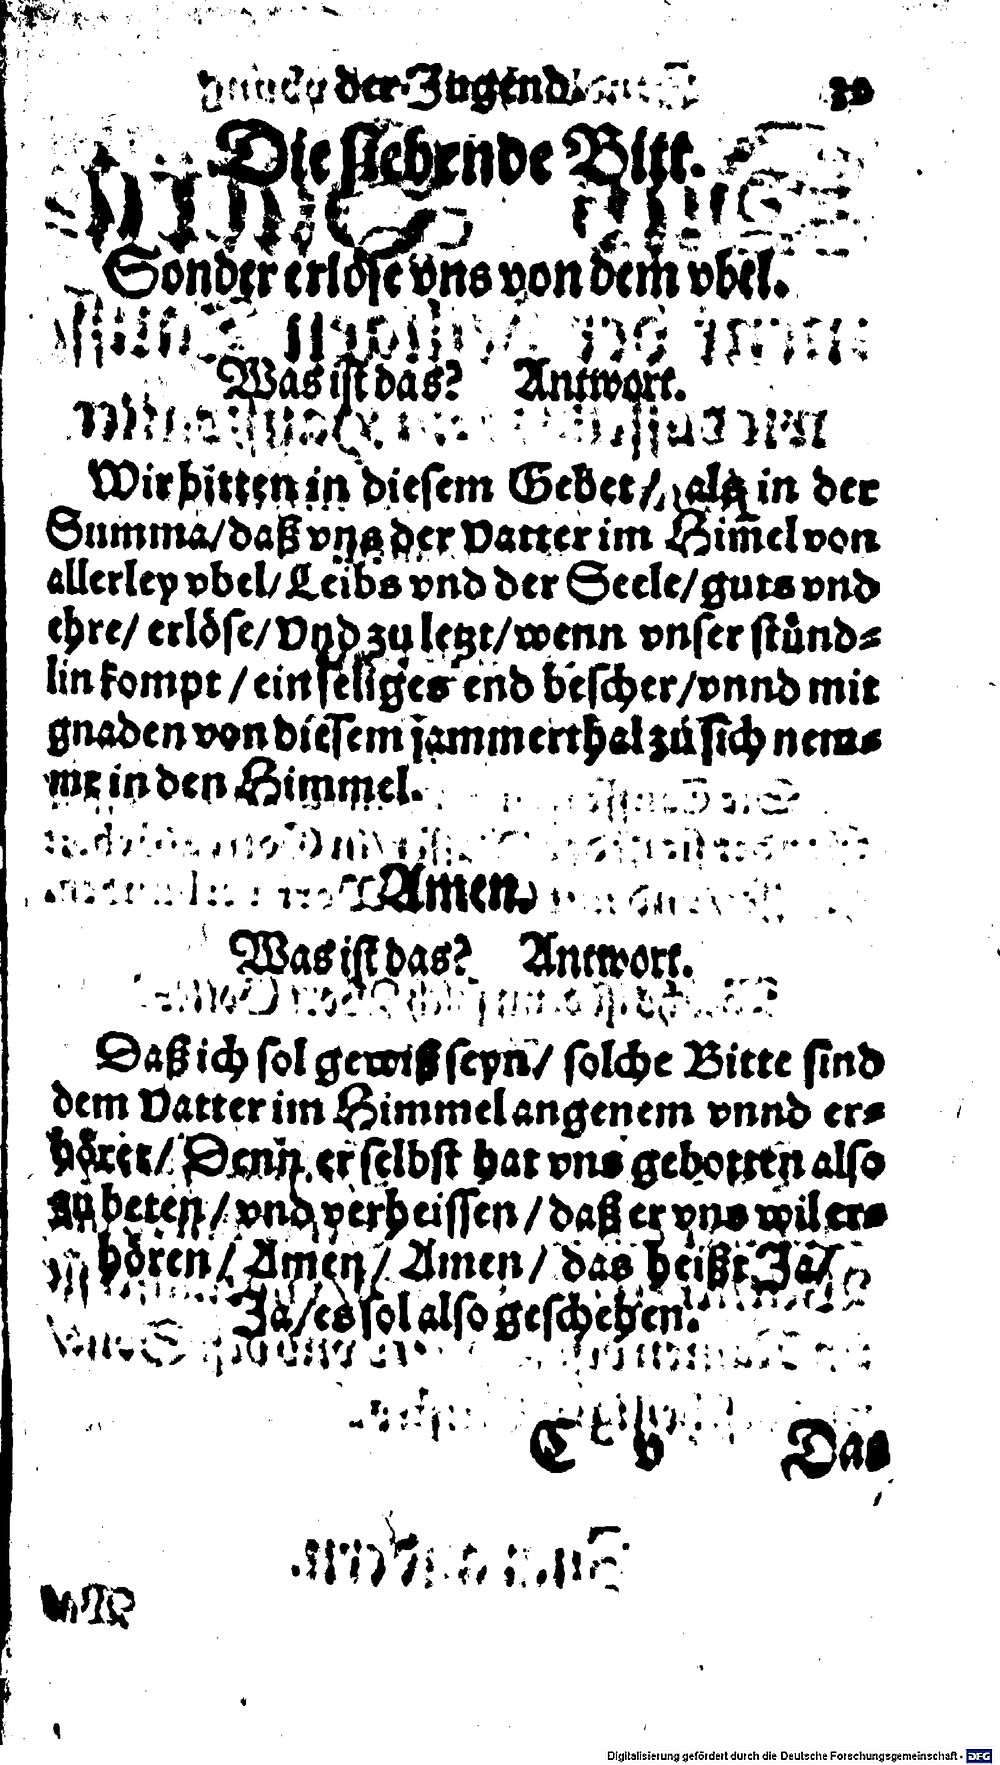 der Jugend. 30
Die siebende Bitt.
Sonder erlöse vns von dem vbel.
Was ist das? Antwort.
Wir bitten in diesem Gebet / als in der
Summa/ daß vns der Vatter im Him̃el von
allerley vbel/ Leibs vnd der Seele/ guts vnd
ehre/ erlöse/ Vnd zu letzt/ wenn vnser stünd⸗
lin kompt / ein seliges end bescher/ vnnd mit
gnaden von diesem jammerthal zů sich nem⸗
me in den Himmel.
Amen.
Was ist das? Antwort.
Daß ich sol gewiß seyn/ solche Bitte sind
dem Vatter im Himmel angenem vnnd er⸗
höret/ Denn er selbst hat vns gebotten also
zu beten/ vnd verheissen/ daß er vns wil er⸗
hören/ Amen/ Amen/ das heißt Ja/
Ja/ es sol also geschehen.
C v Das
Digitalisierung gefördert durch die Deutsche Forschungsgemeinschaft - DFG